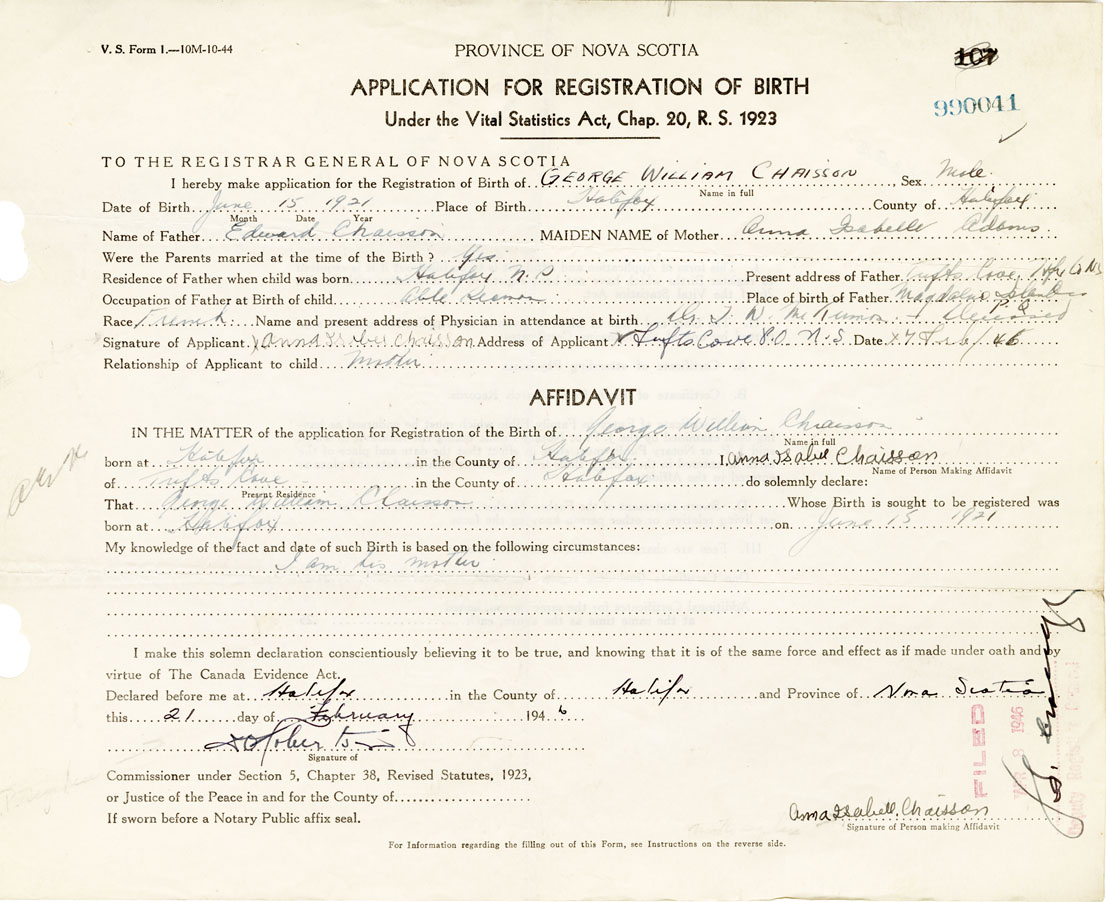 V. S. Form 1.—10M-10-44
PROVINCE OF NOVA SCOTIA
107
APPLICATION FOR REGISTRATION OF BIRTH
990041
Under the Vital Statistics Act, Chap. 20, R. S. 1923
TO THE REGISTRAR GENERAL OF NOVA SCOTIA
I hereby make application for the Registration of Birth of GEORGE WILLIAM CHAISSON, Sex Male
Name in full
Date of Birth June 15 1921 Place of Birth Halifax County of Halifax
Month Date Year
Name of Father Edward Chaisson MAIDEN NAME of Mother Anna Isabelle Adams
Were the Parents married at the time of the Birth? Yes
Residence of Father when child was born Halifax N.S. Present address of Father Tufts Cove, Hfx Co NS
Occupation of Father at Birth of child Able Seaman Place of birth of Father Magdalen Islands
P Q
Race French Name and present address of Physician in attendance at birth Dr. Deceased
Signature of Applicant X Anna Isabel Chaisson Address of Applicant X Tufts Cove P.O. N.S. Date Feb/46
Relationship of Applicant to child Mother
AFFIDAVIT
IN THE MATTER of the application for Registration of the Birth of George William Chaisson
Name in full
born at Halifax in the County of Halifax I, Anna Isabel Chaisson
Name of Person Making Affidavit
of Tufts Cove in the County of Halifax do solemnly declare:
Present Residence
That George William Chaisson Whose Birth is sought to be registered was
born at Halifax on June 15 1921
My knowledge of the fact and date of such Birth is based on the following circumstances:
I am his mother
I make this solemn declaration conscientiously believing it to be true, and knowing that it is of the same force and effect as if made under oath and by
virtue of The Canada Evidence Act.
Declared before me at Halifax in the County of Halifax and Province of Nova Scotia
this 21 day of February 1946
Signature of
Commissioner under Section 5, Chapter 38, Revised Statutes, 1923,
or Justice of the Peace in and for the County of
If sworn before a Notary Public affix seal.
Anna Isabell. Chaisson
Signature of Person making Affidavit
For Information regarding the filling out of this Form, see Instructions on the reverse side.
FILED
1946
Deputy Registrar General